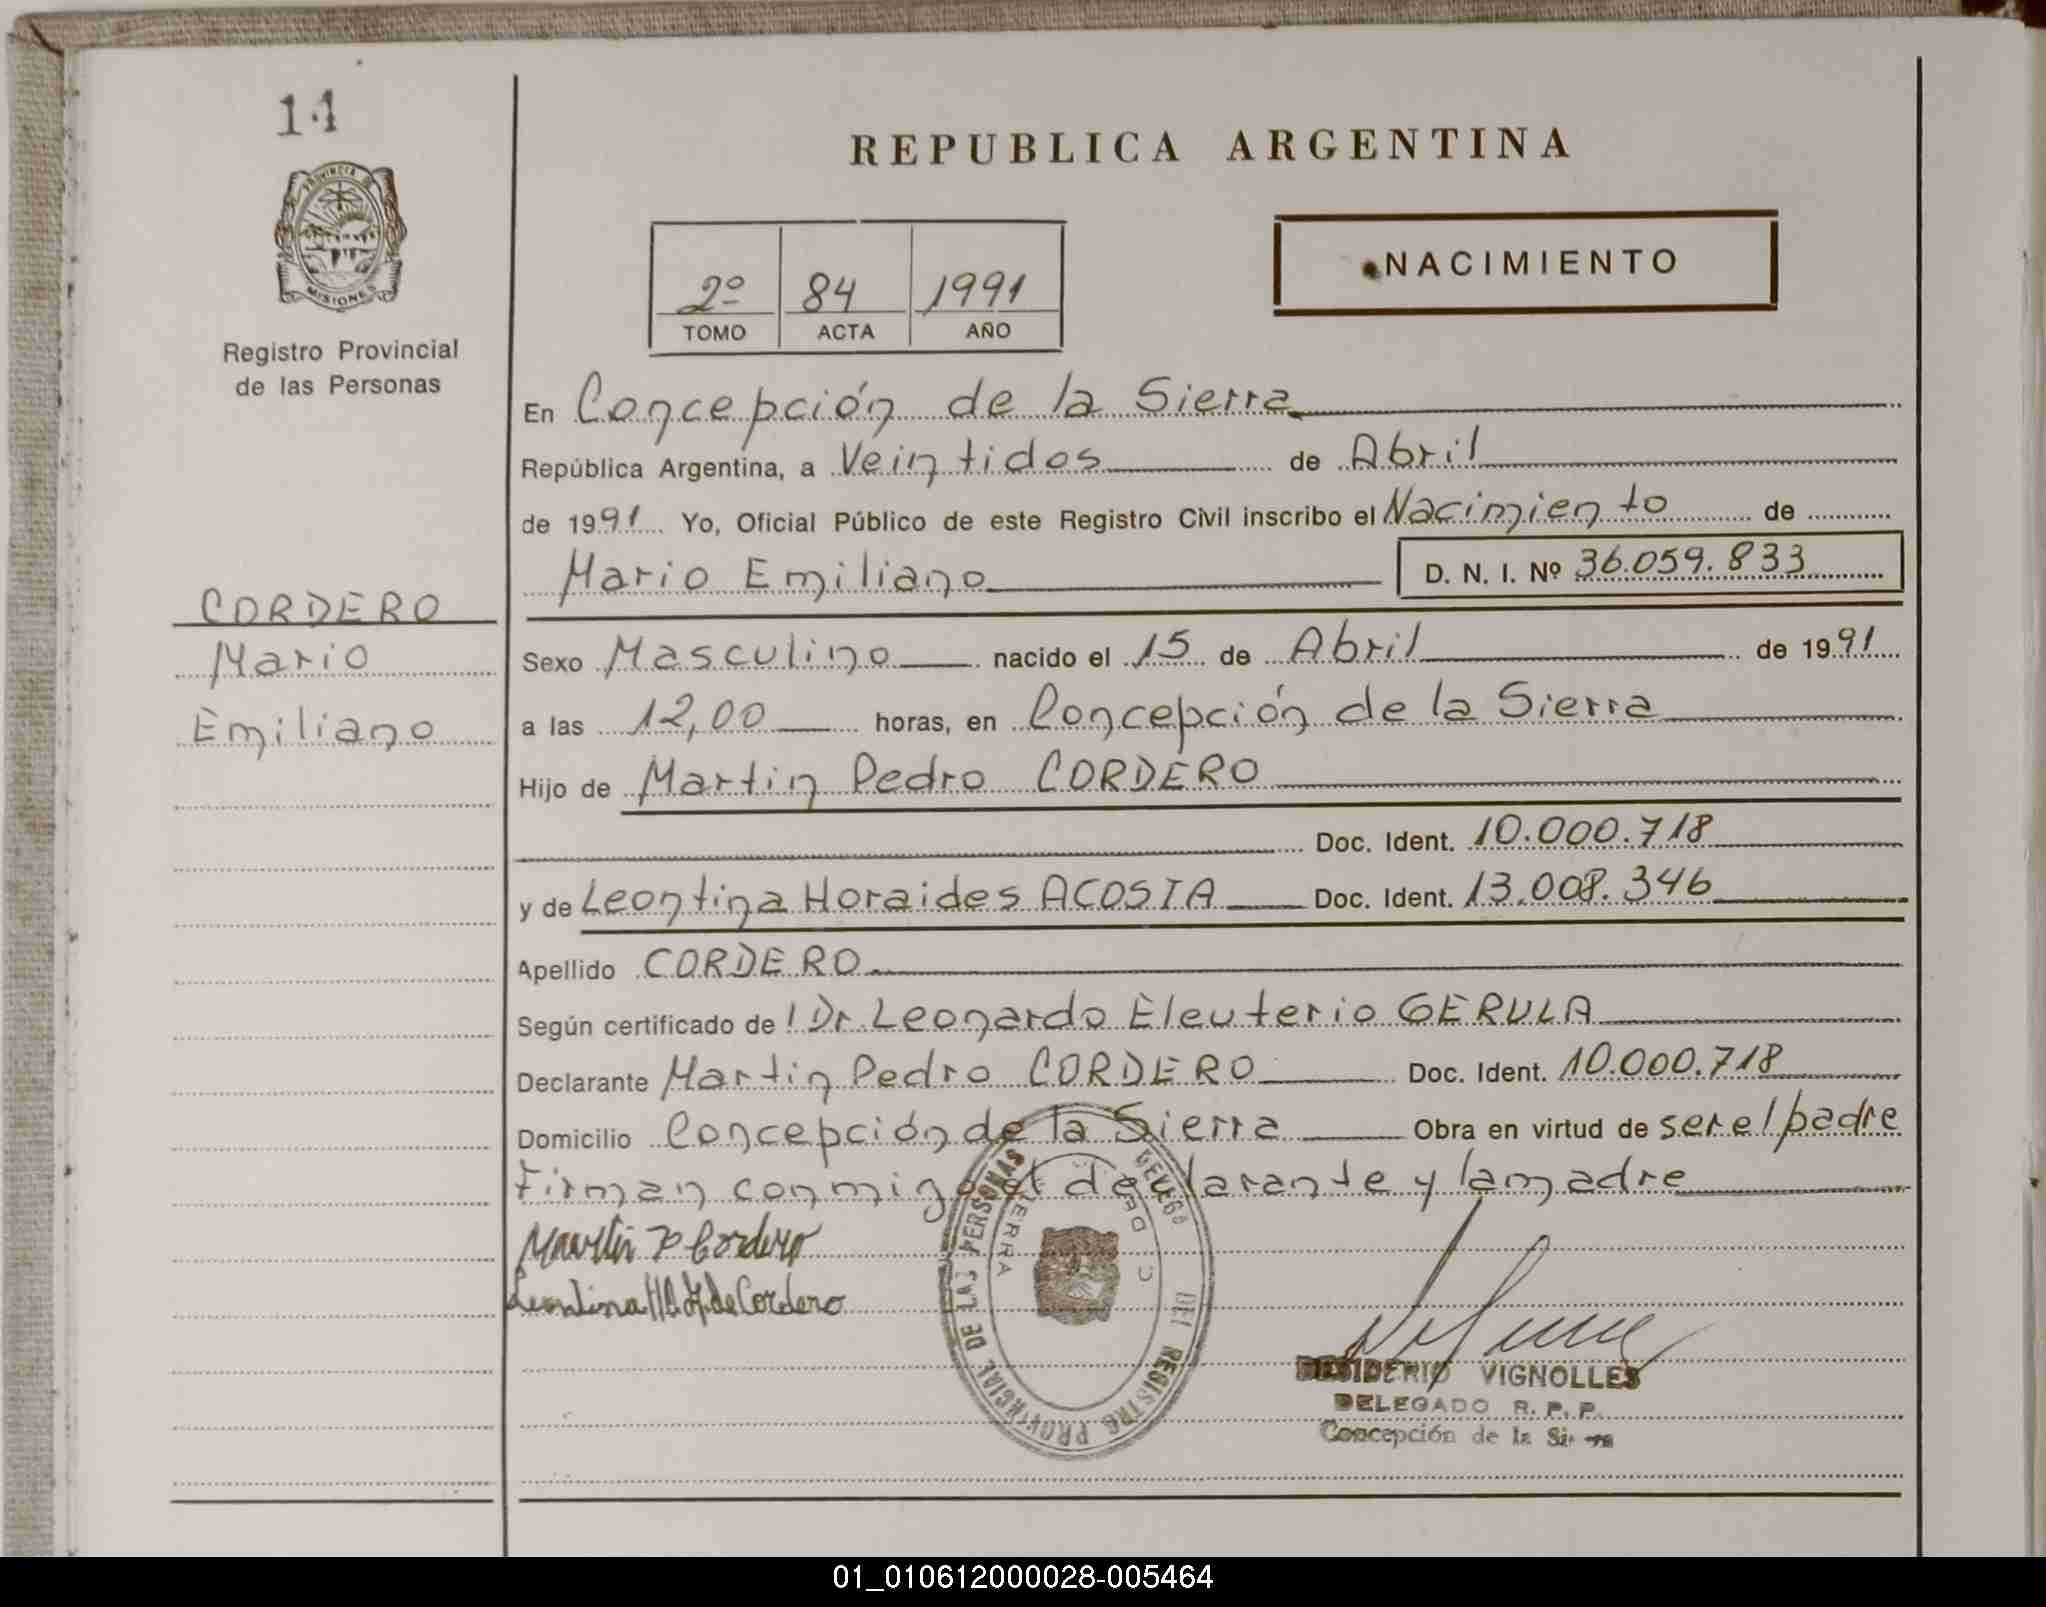 14
PROVINCIA DE
MISIONES
Registro Provincial
de las Personas
CORDERO
Mario
Emiliano
REPUBLICA ARGENTINA
2º 84 1991
TOMO ACTA AÑO
NACIMIENTO
En Concepción de la Sierra
República Argentina, a Veintidos de Abril
de 1991 Yo, Oficial Público de este Registro Civil inscribo el Nacimiento de
Mario Emiliano D. N. I. Nº 36.059.833
Sexo Masculino nacido el 15 de Abril de 1991
a las 12,00 horas, en Concepción de la Sierra
Hijo de Martin Pedro CORDERO
Doc. Ident. 10.000.718
y de Leontina Horaides ACOSTA Doc. Ident. 13.008.346
Apellido CORDERO
Según certificado de l Dr. Leonardo Eleuterio GERULA
Declarante Martin Pedro CORDERO Doc. Ident. 10.000.718
Domicilio Concepción de la Sierra Obra en virtud de ser el padre
Firman conmigo el declarante y la madre
Martin P Cordero
Leontina H A de Cordero
DEL REGISTRO PROVINCIAL DE LAS PERSONAS
DESIDERIO VIGNOLLES
DELEGADO R. P. P.
Concepción de la Sierra
01_010612000028-005464